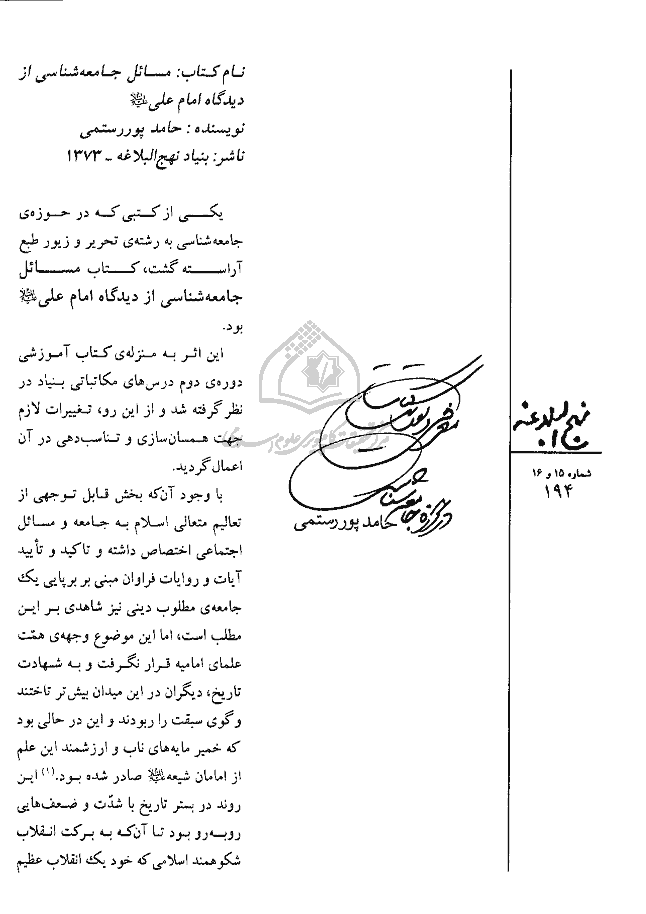 نام کتاب: مسائل جامعه‌شناسی از
دیدگاه امام علی
نویسنده : حامد پوررستمی
ناشر: بنیاد نهج‌البلاغه - ۱۳۷۳
یکی از کتبی که در حوزه‌ی
جامعه‌شناسی به رشته‌ی تحریر و زیور طبع
آراسته گشت، کتاب مسائل
جامعه‌شناسی از دیدگاه امام علی
بود.
این اثر به منزله‌ی کتاب آموزشی
دوره‌ی دوم درس‌های مکاتباتی بنیاد در
نظر گرفته شد و از این رو، تغییرات لازم
جهت همسان‌سازی و تناسب‌دهی در آن
اعمال گردید.
با وجود آن‌که بخش قابل توجهی از
تعالیم متعالی اسلام به جامعه و مسائل
اجتماعی اختصاص داشته و تاکید و تأیید
آیات و روایات فراوان مبنی بر برپایی یک
جامعه‌ی مطلوب دینی نیز شاهدی بر این
مطلب است، اما این موضوع وجهه‌ی همّت
علمای امامیه قرار نگرفت و به شهادت
تاریخ، دیگران در این میدان بیش‌تر تاختند
و گوی سبقت را ربودند و این در حالی بود
که خمیر مایه‌های ناب و ارزشمند این علم
از امامان شیعه صادر شده بود.(۱) این
روند در بستر تاریخ با شدّت و ضعف‌هایی
روبه‌رو بود تا آن‌که به برکت انقلاب
شکوهمند اسلامی که خود یک انقلاب عظیم
حامد پوررستمی
نهج البلاغه
شماره ۱۵ و ۱۶
۱۹۴